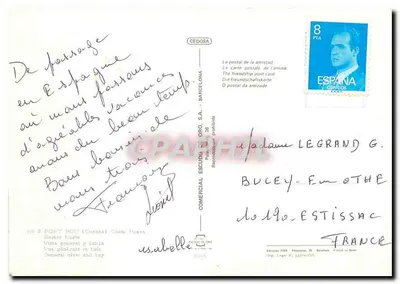 De passage
en Espagne
où nous passons
d'agréables vacances
avons du beau temp.
Bons baisers de
nous trois
Françoise
Lionel
Isabelle
CEDOSA
COMERCIAL ESCUDO DE ORO, S.A. - BARCELONA
La postal de la amistad
La carte postale de l'amitié
The friendship post card
Die Freundschaftskarte
8
PTA
ESPAÑA
CORREOS
Madame LEGRAND G.
BUCEY-En-OTHE
10190-ESTISSAC
FRANCE
Vista general y bahía
Vue générale et baie
General view and bay